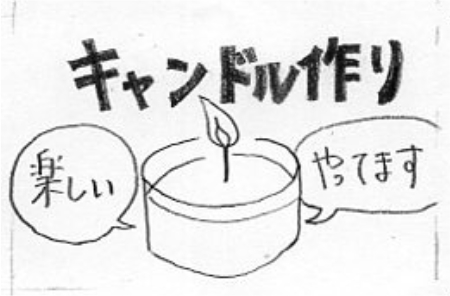 キャンドル作り
楽しい
やってます